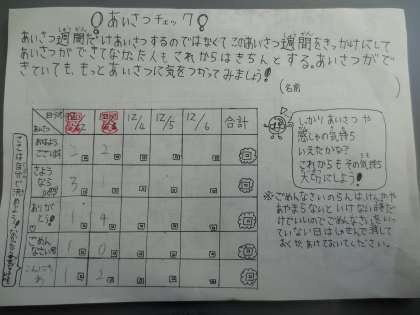 あいさつチェック
あいさつ週間だけあいさつするのではなくてこのあいさつ週間をきっかけにして
あいさつができてなかった人もこれからはきちんとする。あいさつがで
きていても、もっとあいさつに気をつかってみましょう!
(名前
日づけ
あいさつ
12/4
12/5
12/6
合計
おはよう
ございます
2
2
回
さよう
なら
3
回
ありが
とう!
1
4
回
ごめん
なさい
1
0
回
こんにち
わ
1
2
回
しっかりあいさつや
感しゃの気持ち
いえたかな?
これからもその気持ち
大切にしよう!
※ごめんなさいのらんは、けんかや
あやまらないといけない時だ
けでいいのでごめんなさいをいっ
ていない日はしゃせんで消して
おくか、あけておいてください。